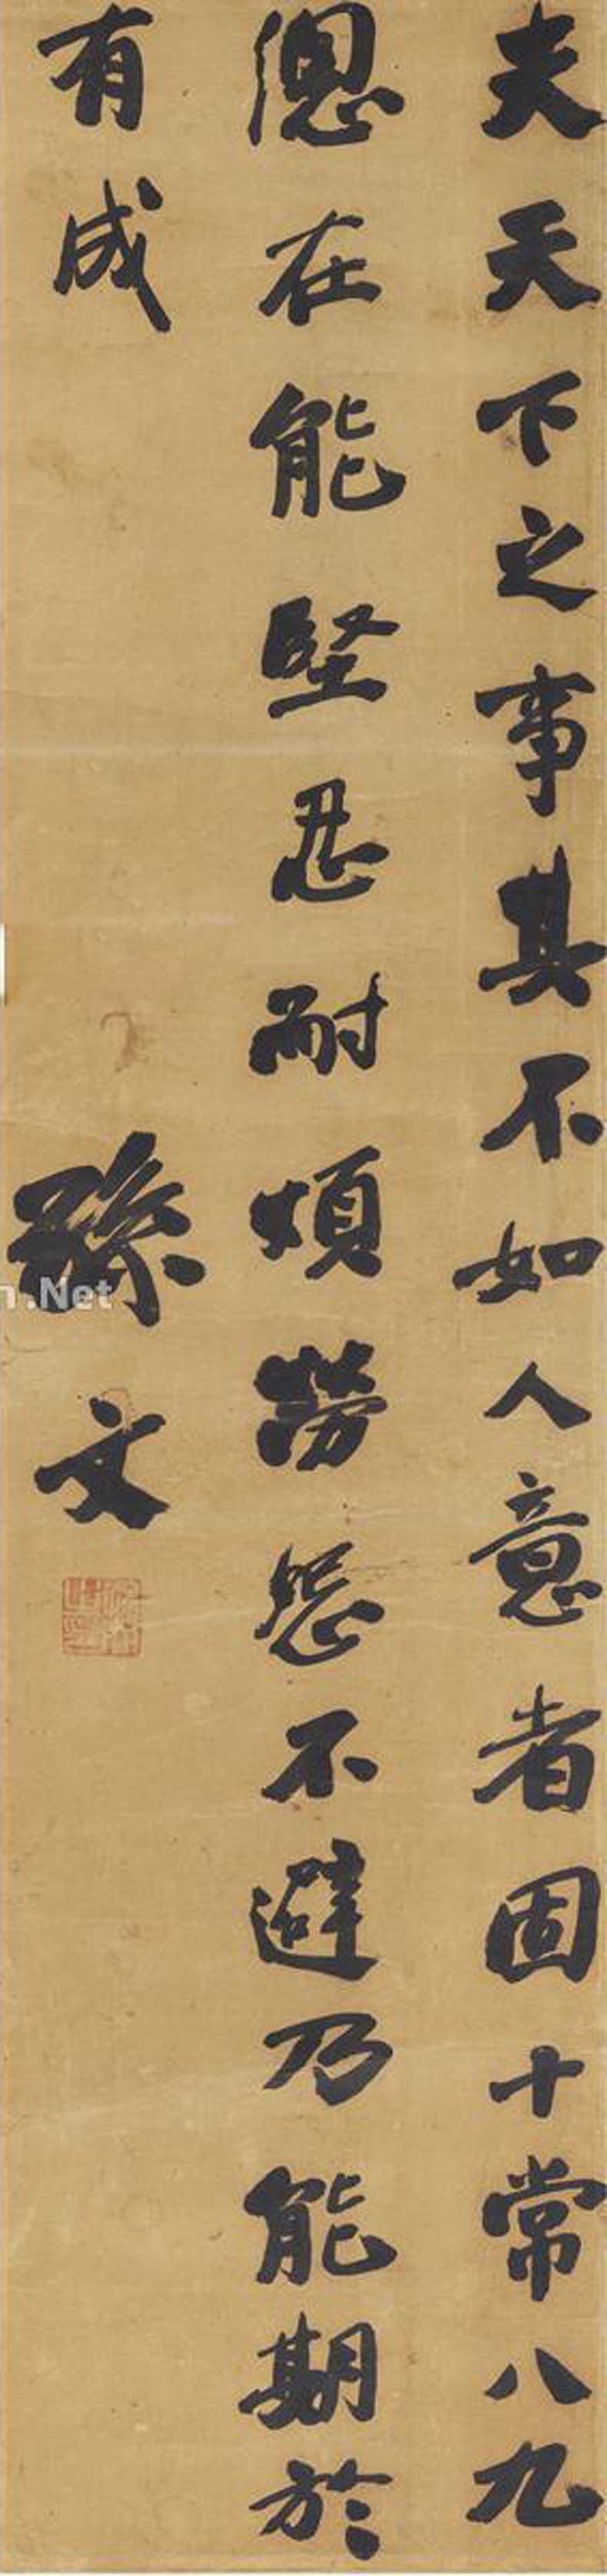 夫天下之事其不如人意者固十常八九
傯在能堅忍耐煩勞怨不避乃能期於
有成
孫文
.Net